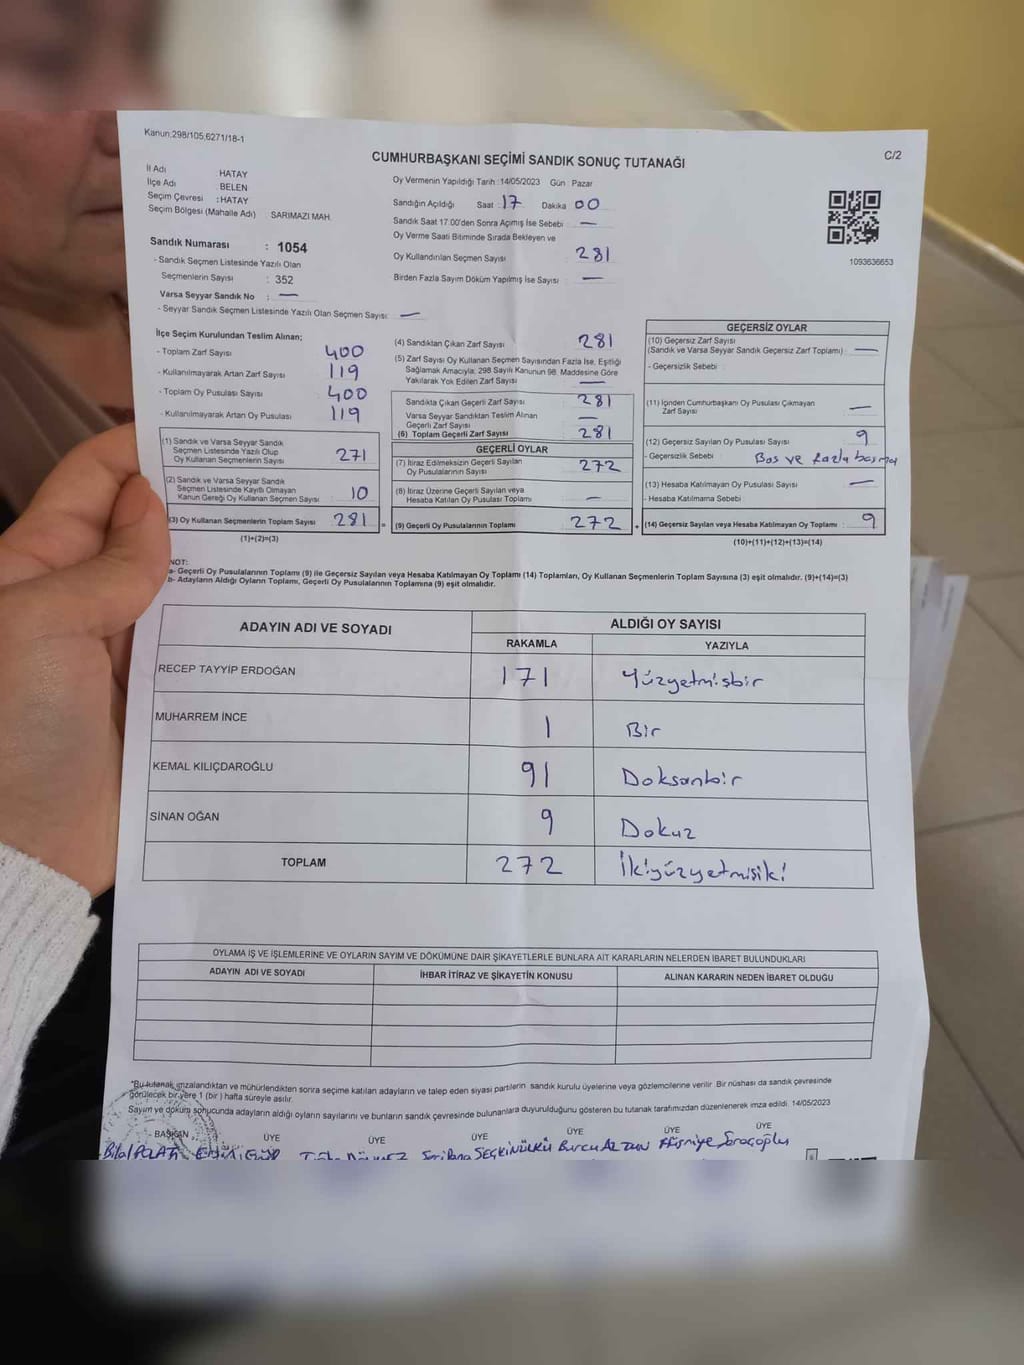 Kanun;298/105,6271/18-1
CUMHURBAŞKANI SEÇİMİ SANDIK SONUÇ TUTANAĞI
C/2
İl Adı HATAY
İlçe Adı : BELEN
Seçim Çevresi : HATAY
Seçim Bölgesi (Mahalle Adı) : SARIMAZI MAH.
Oy Vermenin Yapıldığı Tarih : 14/05/2023 Gün : Pazar
Sandığın Açıldığı Saat : 17 Dakika 00
Sandık Saat 17.00'den Sonra Açımış İse Sebebi : —
Oy Verme Saati Bitiminde Sırada Bekleyen ve
Oy Kullandırılan Seçmen Sayısı 281
Birden Fazla Sayım Döküm Yapılmış İse Sayısı : —
1093636653
Sandık Numarası : 1054
- Sandık Seçmen Listesinde Yazılı Olan
Seçmenlerin Sayısı : 352
Varsa Seyyar Sandık No : —
- Seyyar Sandık Seçmen Listesinde Yazılı Olan Seçmen Sayısı: —
İlçe Seçim Kurulundan Teslim Alınan;
- Toplam Zarf Sayısı 400
- Kullanılmayarak Artan Zarf Sayısı : 119
- Toplam Oy Pusulası Sayısı : 400
- Kullanılmayarak Artan Oy Pusulası : 119
(1) Sandık ve Varsa Seyyar Sandık
Seçmen Listesinde Yazılı Olup
Oy Kullanan Seçmenlerin Sayısı : 271
(2) Sandık ve Varsa Seyyar Sandık
Seçmen Listesinde Kayıtlı Olmayan
Kanun Gereği Oy Kullanan Seçmen Sayısı : 10
(3) Oy Kullanan Seçmenlerin Toplam Sayısı : 281 =
(1)+(2)=(3)
(4) Sandıktan Çıkan Zarf Sayısı 281
(5) Zarf Sayısı Oy Kullanan Seçmen Sayısından Fazla İse, Eşitliği
Sağlamak Amacıyla; 298 Sayılı Kanunun 98. Maddesine Göre
Yakılarak Yok Edilen Zarf Sayısı —
Sandıkta Çıkan Geçerli Zarf Sayısı : 281
Varsa Seyyar Sandıktan Teslim Alınan
Geçerli Zarf Sayısı : —
(6) Toplam Geçerli Zarf Sayısı : 281
GEÇERLİ OYLAR
(7) İtiraz Edilmeksizin Geçerli Sayılan
Oy Pusulalarının Sayısı : 272
(8) İtiraz Üzerine Geçerli Sayılan veya
Hesaba Katılan Oy Pusulası Toplamı : —
(9) Geçerli Oy Pusulalarının Toplamı : 272 +
GEÇERSİZ OYLAR
(10) Geçersiz Zarf Sayısı
(Sandık ve Varsa Seyyar Sandık Geçersiz Zarf Toplamı) : —
- Geçersizlik Sebebi :
(11) İçinden Cumhurbaşkanı Oy Pusulası Çıkmayan
Zarf Sayısı : —
(12) Geçersiz Sayılan Oy Pusulası Sayısı : 9
- Geçersizlik Sebebi : Bos ve fazla basma
(13) Hesaba Katılmayan Oy Pusulası Sayısı : —
- Hesaba Katılmama Sebebi :
(14) Geçersiz Sayılan veya Hesaba Katılmayan Oy Toplamı : 9
(10)+(11)+(12)+(13)=(14)
NOT:
a- Geçerli Oy Pusulalarının Toplamı (9) ile Geçersiz Sayılan veya Hesaba Katılmayan Oy Toplamı (14) Toplamları, Oy Kullanan Seçmenlerin Toplam Sayısına (3) eşit olmalıdır. (9)+(14)=(3)
b- Adayların Aldığı Oyların Toplamı, Geçerli Oy Pusulalarının Toplamına (9) eşit olmalıdır.
ADAYIN ADI VE SOYADI ALDIĞI OY SAYISI
RAKAMLA YAZIYLA
RECEP TAYYİP ERDOĞAN 171 Yüzyetmişbir
MUHARREM İNCE 1 Bir
KEMAL KILIÇDAROĞLU 91 Doksanbir
SİNAN OĞAN 9 Dokuz
TOPLAM 272 İkiyüzyetmişiki
OYLAMA İŞ VE İŞLEMLERİNE VE OYLARIN SAYIM VE DÖKÜMÜNE DAİR ŞİKAYETLERLE BUNLARA AİT KARARLARIN NELERDEN İBARET BULUNDUKLARI
ADAYIN ADI VE SOYADI İHBAR İTİRAZ VE ŞİKAYETİN KONUSU ALINAN KARARIN NEDEN İBARET OLDUĞU
"Bu tutanak imzalandıktan ve mühürlendikten sonra seçime katılan adayların ve talep eden siyasi partilerin sandık kurulu üyelerine veya gözlemcilerine verilir. Bir nüshası da sandık çevresinde
görülecek bir yere 1 (bir) hafta süreyle asılır.
Sayım ve döküm sonucunda adayların aldığı oyların sayılarını ve bunların sandık çevresinde bulunanlara duyurulduğunu gösteren bu tutanak tarafımızdan düzenlenerek imza edildi. 14/05/2023
BAŞKAN ÜYE ÜYE ÜYE ÜYE ÜYE
Bilal POLAT SEÇKİNÜLKÜ Burcu ALTUN Hüsniye Saraçoğlu